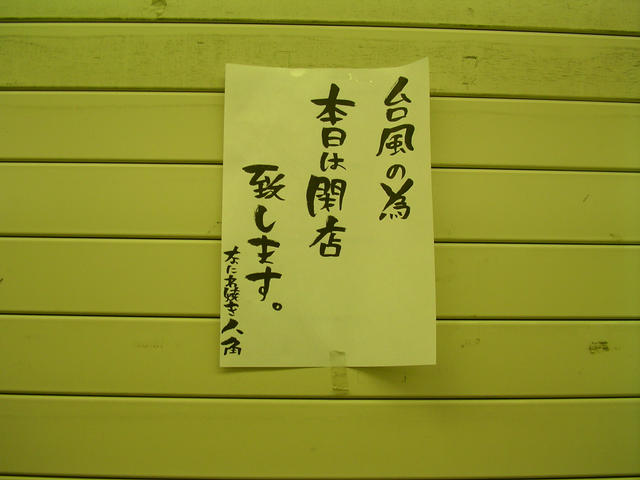 台風の為
本日は閉店
致します。
なにわ焼き 八角